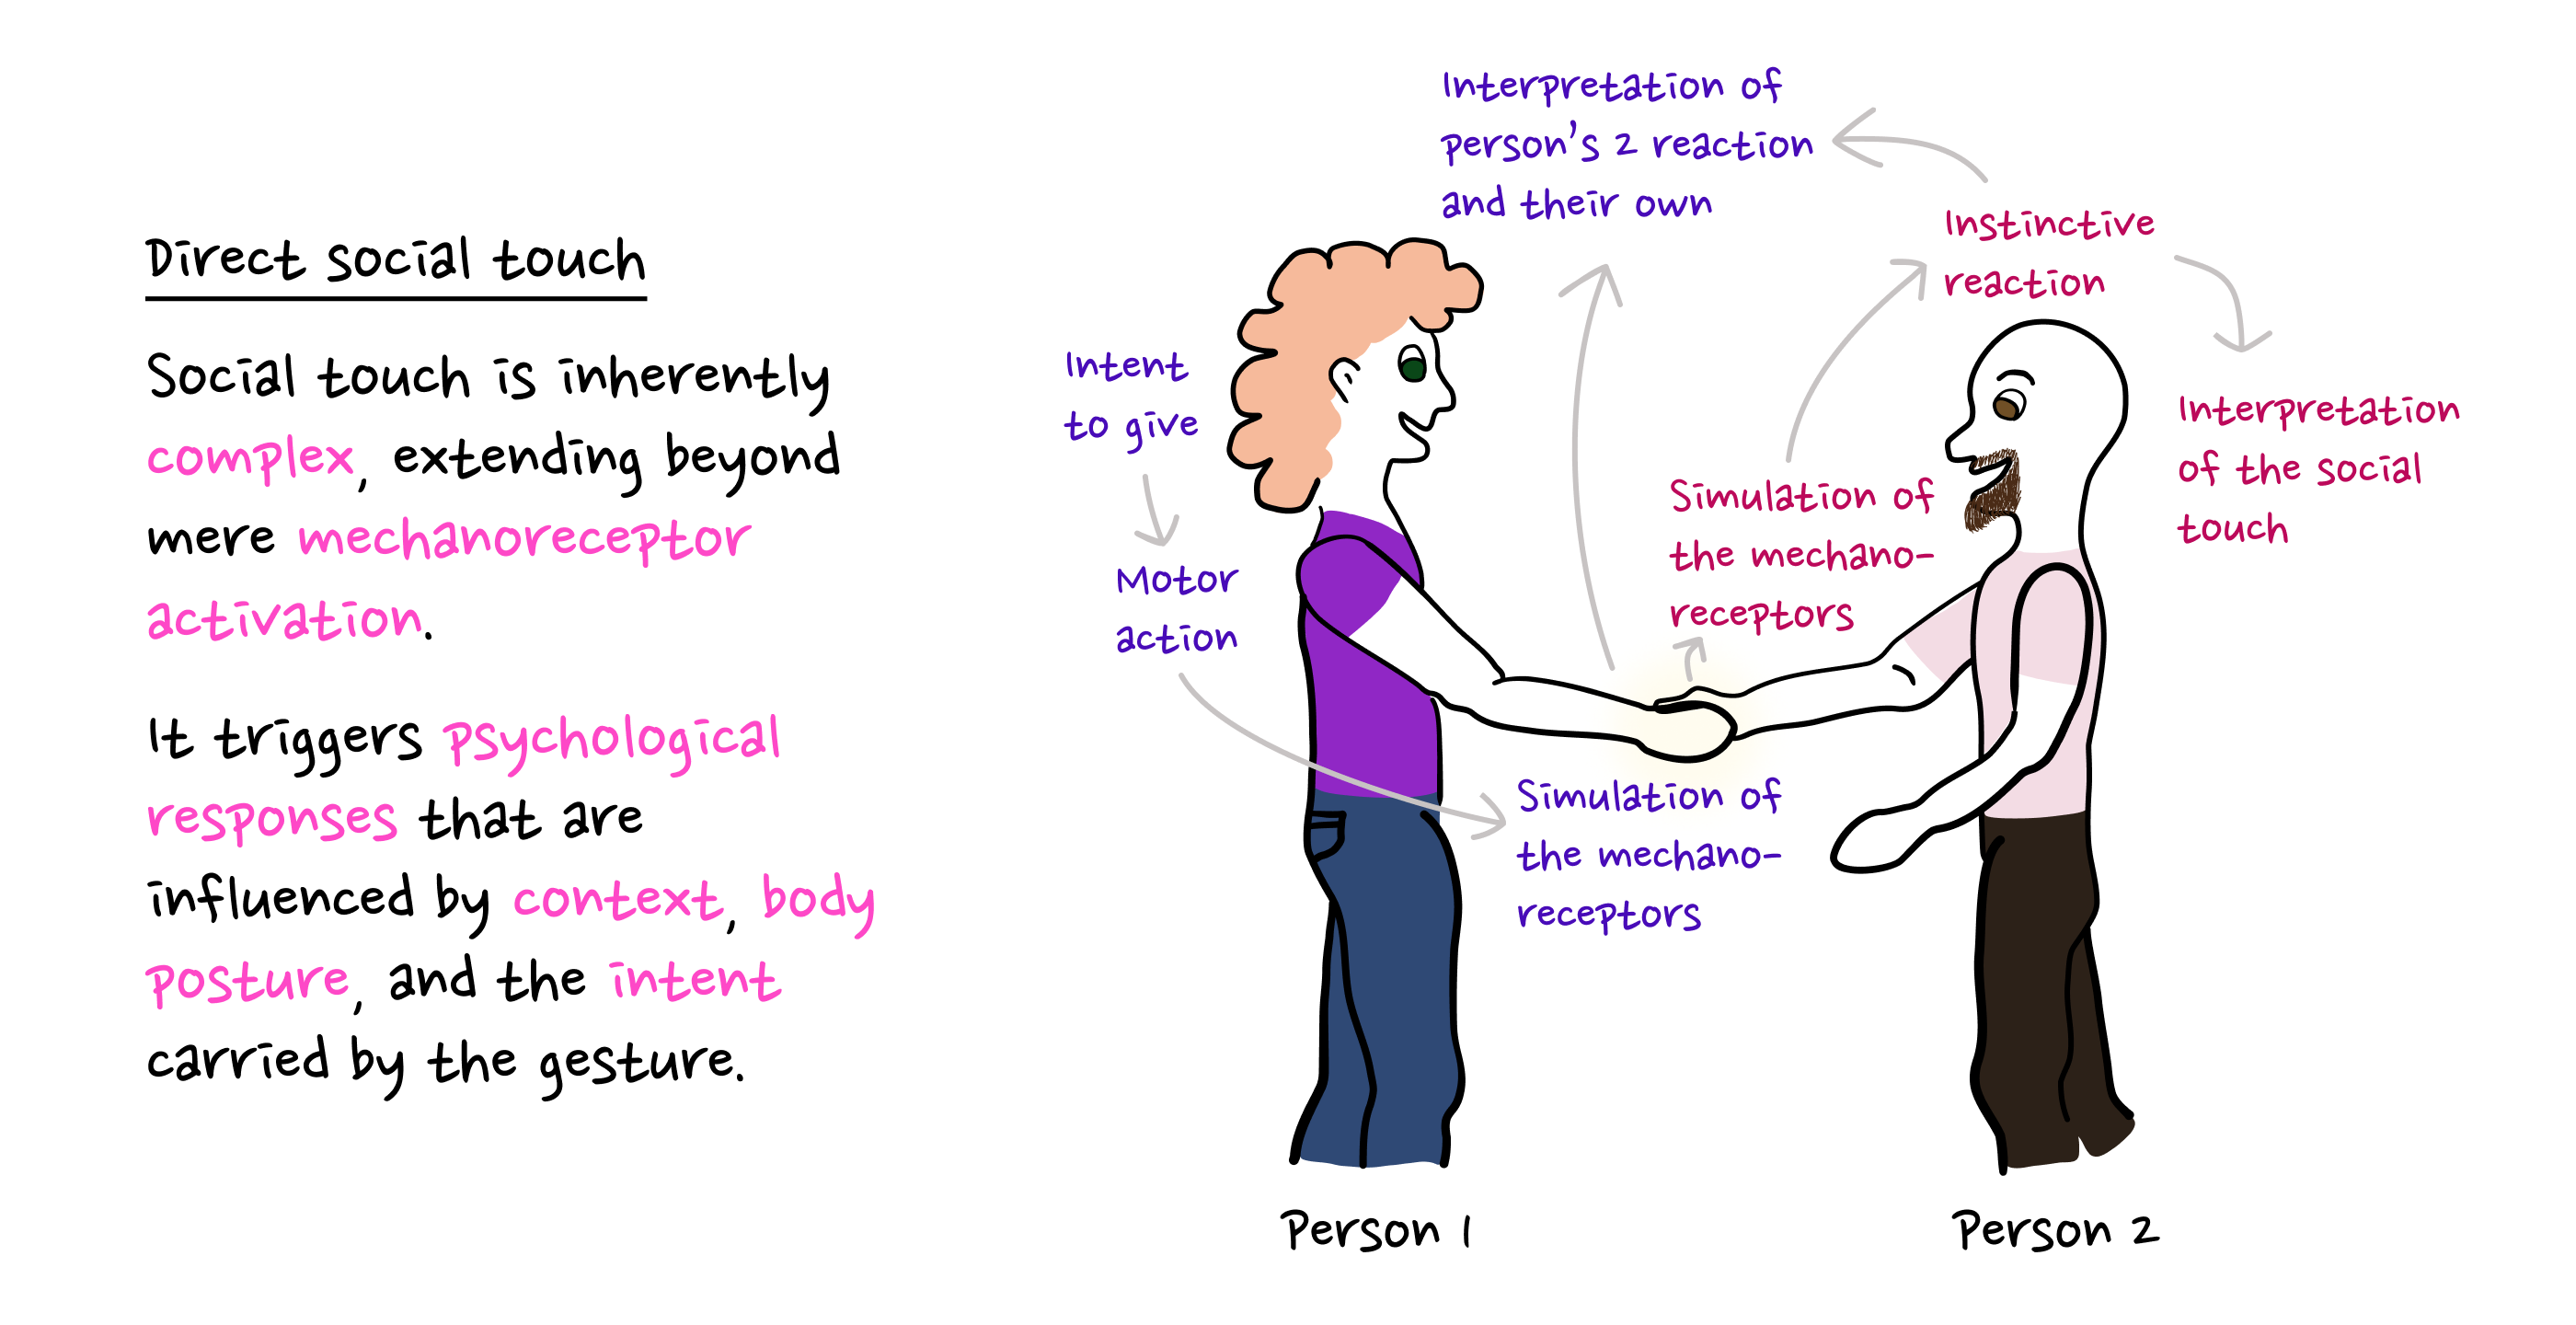 Direct social touch
Social touch is inherently
complex, extending beyond
mere mechanoreceptor
activation.
It triggers psychological
responses that are
influenced by context, body
posture, and the intent
carried by the gesture.
Intent
to give
Motor
action
Simulation of
the mechano-
receptors
Interpretation of
person's 2 reaction
and their own
Simulation of
the mechano-
receptors
Instinctive
reaction
Interpretation
of the social
touch
Person 1
Person 2